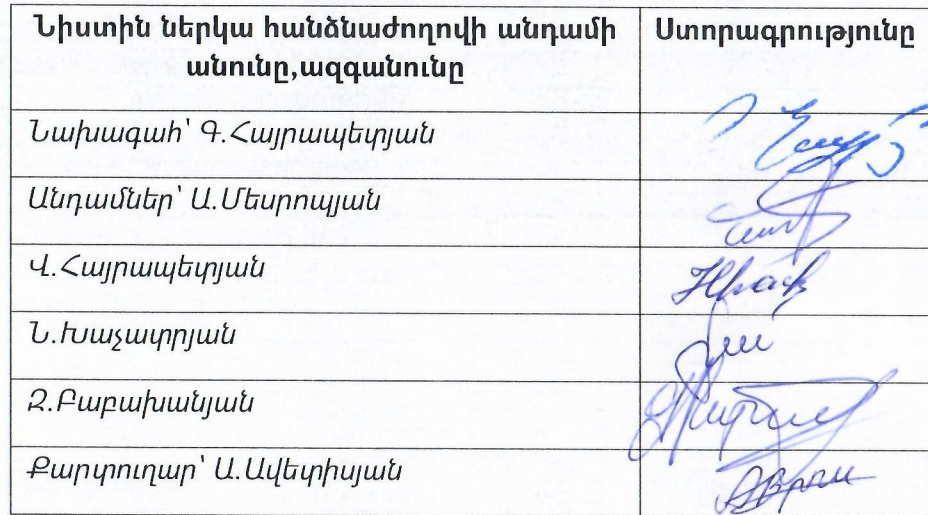 Նիստին ներկա հանձնաժողովի անդամի
անունը,ազգանունը
Ստորագրությունը
Նախագահ՝ Գ.Հայրապետյան
Անդամներ՝ Ա.Մեսրոպյան
Վ.Հայրապետյան
Ն.Խաչատրյան
Զ.Բաբախանյան
Քարտուղար՝ Ա.Ավետիսյան